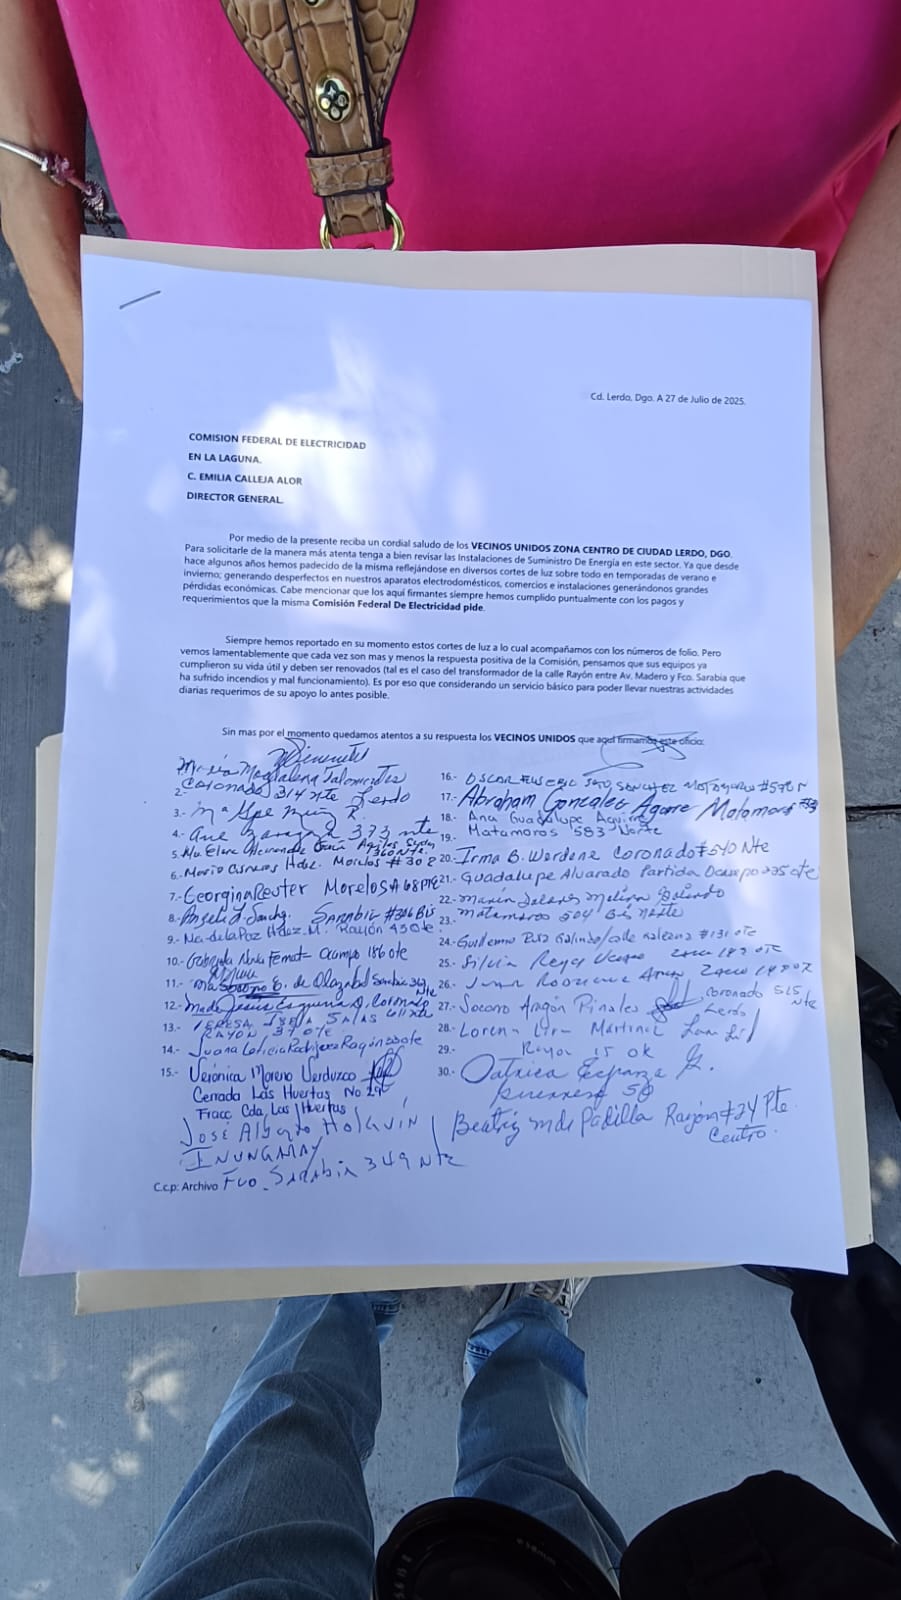 Cd. Lerdo, Dgo. A 27 de Julio de 2025.
COMISION FEDERAL DE ELECTRICIDAD
EN LA LAGUNA.
C. EMILIA CALLEJA ALOR
DIRECTOR GENERAL.
Por medio de la presente reciba un cordial saludo de los VECINOS UNIDOS ZONA CENTRO DE CIUDAD LERDO, DGO.
Para solicitarle de la manera más atenta tenga a bien revisar las Instalaciones de Suministro De Energía en este sector. Ya que desde
hace algunos años hemos padecido de la misma reflejándose en diversos cortes de luz sobre todo en temporadas de verano e
invierno; generando desperfectos en nuestros aparatos electrodomésticos, comercios e instalaciones generándonos grandes
pérdidas económicas. Cabe mencionar que los aquí firmantes siempre hemos cumplido puntualmente con los pagos y
requerimientos que la misma Comisión Federal De Electricidad pide.
Siempre hemos reportado en su momento estos cortes de luz a lo cual acompañamos con los números de folio. Pero
vemos lamentablemente que cada vez son mas y menos la respuesta positiva de la Comisión, pensamos que sus equipos ya
cumplieron su vida útil y deben ser renovados (tal es el caso del transformador de la calle Rayón entre Av. Madero y Fco. Sarabia que
ha sufrido incendios y mal funcionamiento). Es por eso que considerando un servicio básico para poder llevar nuestras actividades
diarias requerimos de su apoyo lo antes posible.
Sin mas por el momento quedamos atentos a su respuesta los VECINOS UNIDOS que aquí firmamos este oficio:
María Magdalena
2.- Coronado 314 nte Lerdo
3.- Ma Gpe
4.- 373 nte
5.- Ma Elena Hernandez
360 Nte.
6.- Mario Cisneros Hdez. Morelos # 302
7.- Georgina Reuter Morelos # 68 Pte
8.- Sarabia #306 Bis
9.- Ma. de la Paz Hdez. M. Rayón 430 te
10.- Gabriela Femat Ocampo 186 ote
11.- de Sarabia 343
Nte
12.- Ma de Jesus Coronado
13.- TERESA SALAS
RAYON
14.- Juana Leticia Rodriguez Rayón
15.- Verónica Moreno Verduzco
Cerrada Las Huertas No 29
Fracc Cda. Las Huertas
José Alberto Holguín
INUNGMAY
C.c.p: Archivo Fco. Sarabia 349 Nte
16.- OSCAR EUSEBIO SANCHEZ
17.- Abraham Gonzalez Aguirre Matamoros
18.- Ana Guadalupe Aguirre
19.- Matamoros 583 Norte
20.- Irma B. Coronado # 540 Nte
21.- Guadalupe Alvarado Partida Ocampo 235 ote
22.- María Dolores Molina
23.- Matamoros 504 Bis norte
24.- Guillermo Galindo calle Galeana #131 ote
25.- Silvia Reyes
26.-
27.- Socorro Aragón Pinales Coronado 515
Nte
Lerdo
28.- Lorena Martinez
29.- Rayon 15
30.- Patricia Esparza
Guerrero 50
Beatriz M de Padilla Rayón #24 Pte
Centro.